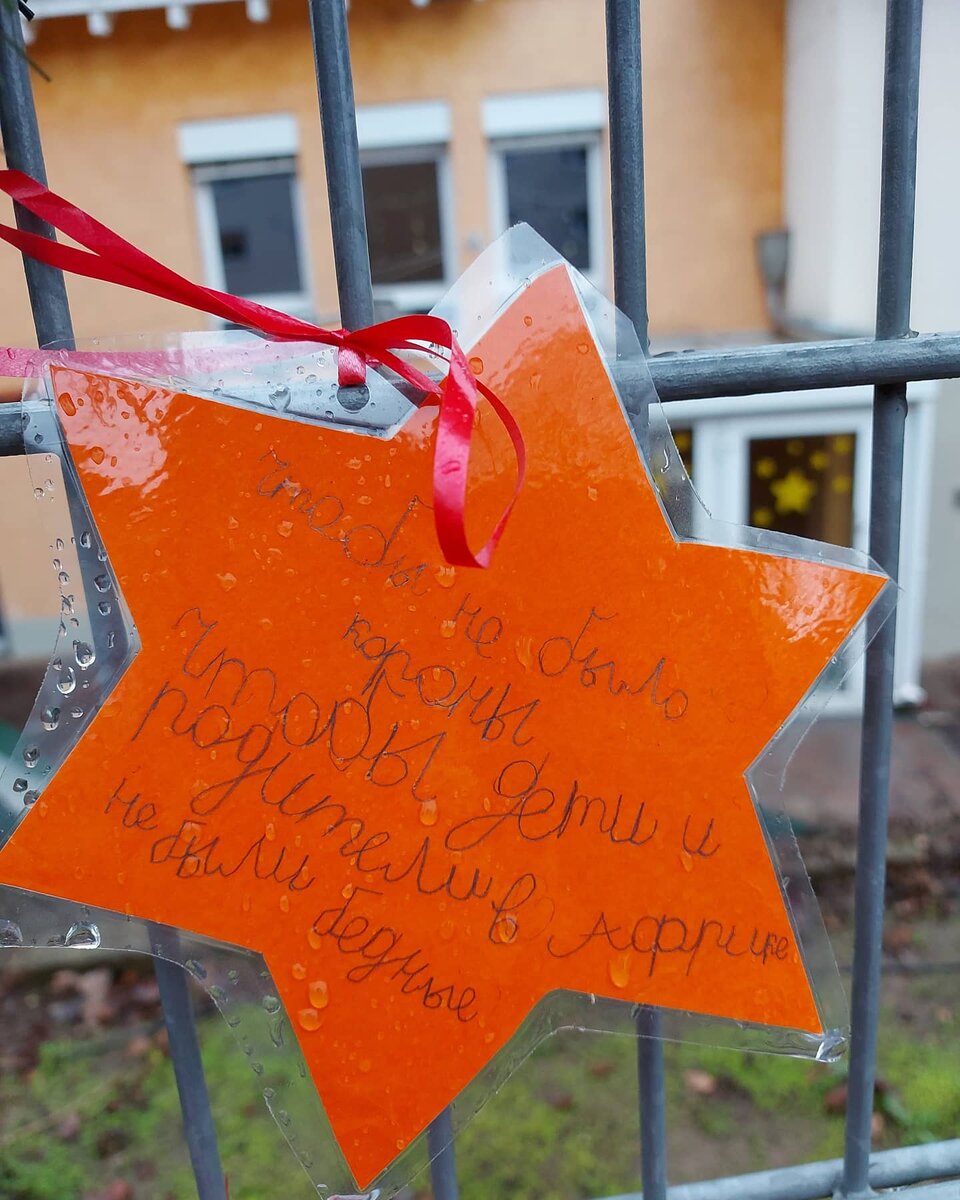 чтобы не было
короны
чтобы дети и
родители в Африке
не были бедные